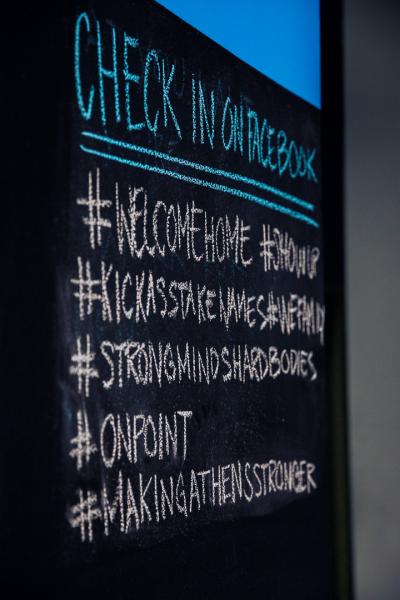 CHECK IN ON FACEBOOK
#WELCOMEHOME #SHOWUP
#KICKASSTAKENAMES #WEFAMILY
#STRONGMINDSHARDBODIES
#ONPOINT
#MAKINGATHENSSTRONGER